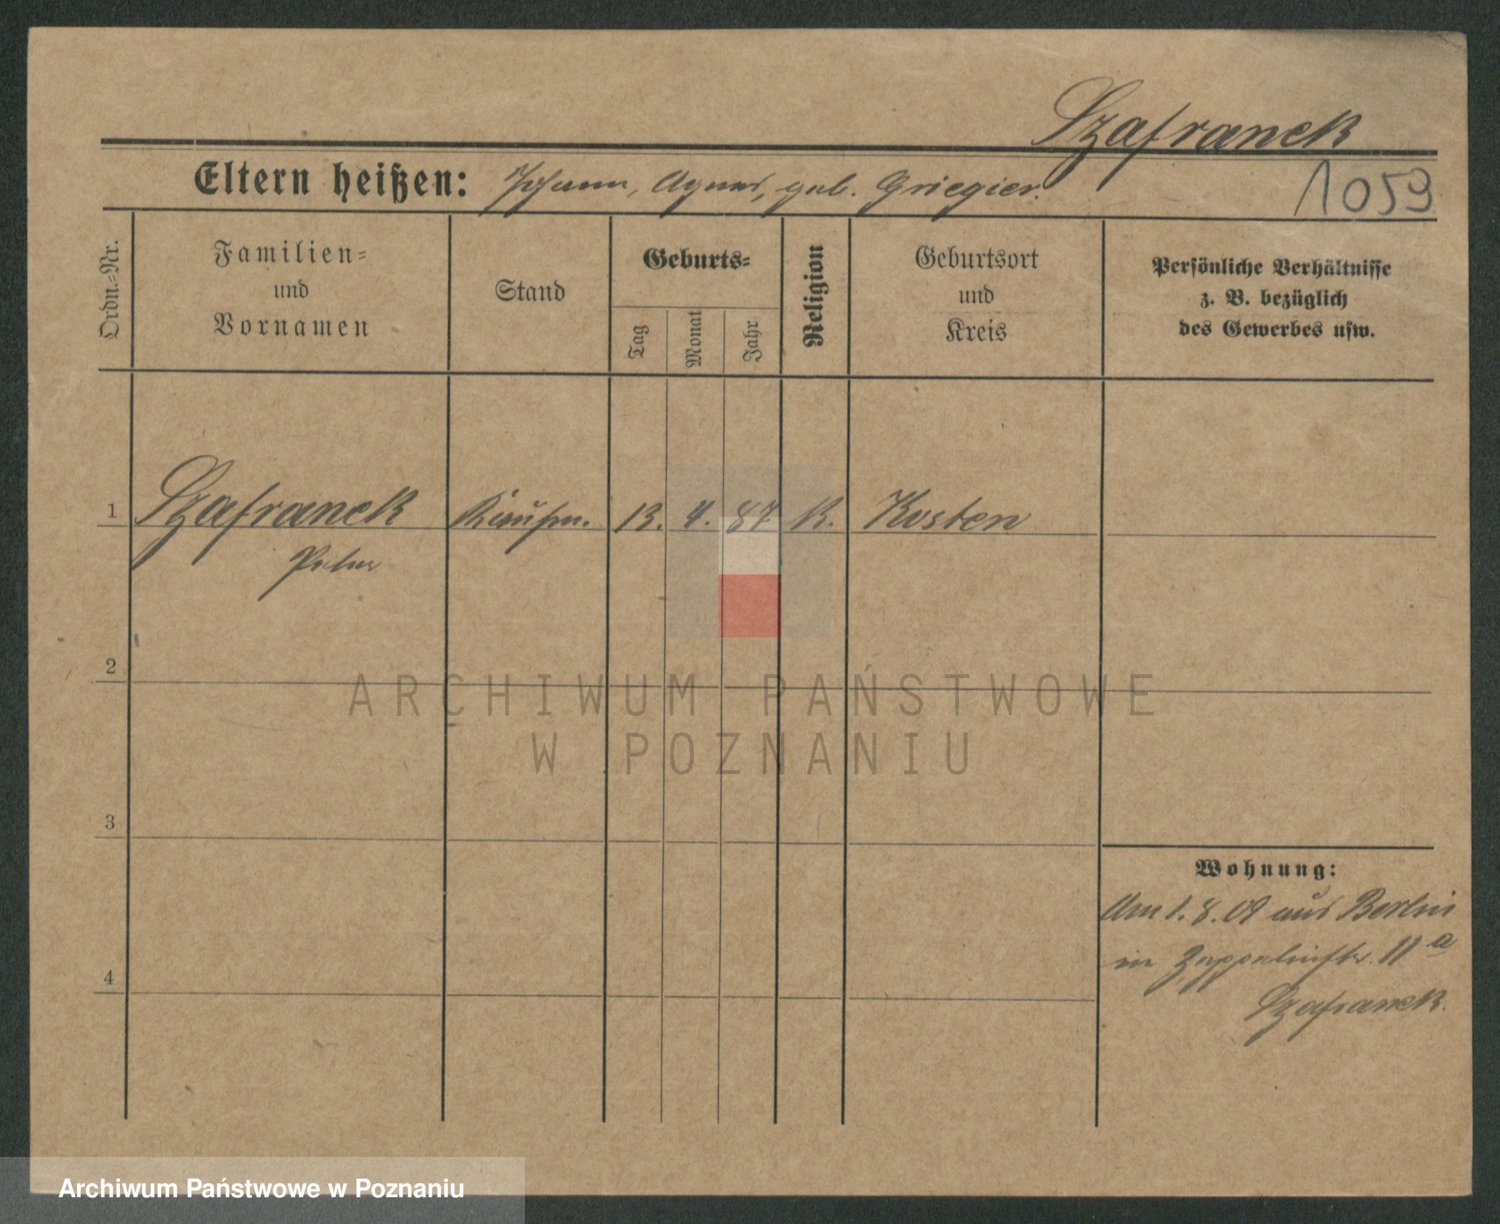 Szafranek
Eltern heißen: Johann, Agnes, geb. Griegier.
1059
Ordn.-Nr.
Familien-
und
Vornamen
Stand
Geburts-
Tag
Monat
Jahr
Religion
Geburtsort
und
Kreis
Persönliche Verhältnisse
z. B. bezüglich
des Gewerbes usw.
1 Szafranek Kaufm. 13. 4. 87 K. Kosten
Peter
2
ARCHIWUM PAŃSTWOWE
W POZNANIU
3
Wohnung:
Am 1.8.09 aus Berlin
in Zeppelinstr. 11a
4
Szafranek.
Archiwum Państwowe w Poznaniu